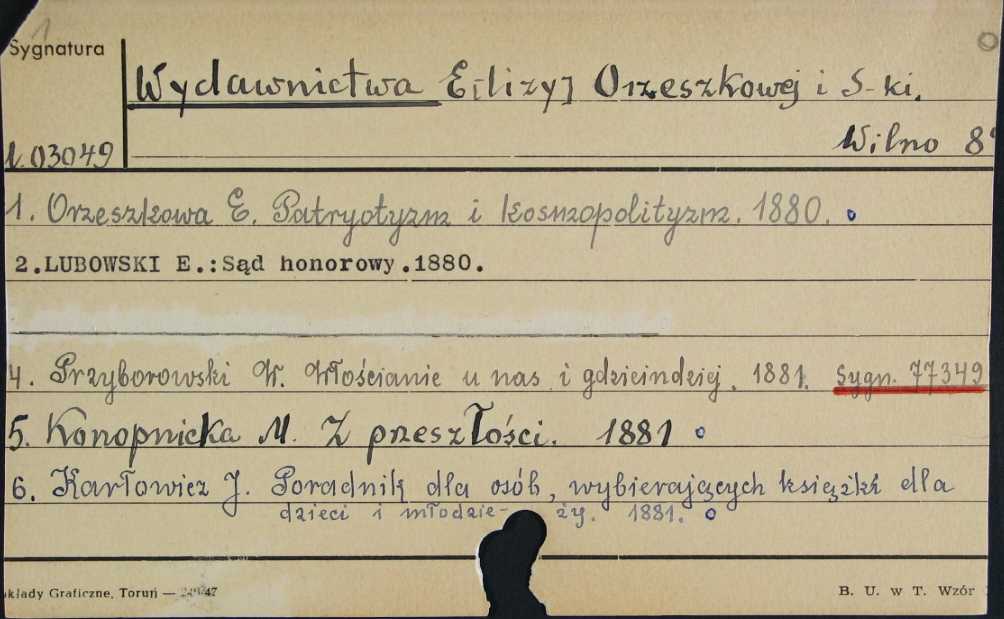 1
Sygnatura
Wydawnictwa E[lizy] Orzeszkowej i S-ki.
1.03049
Wilno 8°
1. Orzeszkowa E. Patryotyzm i kosmopolityzm. 1880.
2.LUBOWSKI E.:Sąd honorowy.1880.
4. Przyborowski W. Włościanie u nas i gdzieindziej. 1881. Sygn. 77349
5. Konopnicka M. Z przeszłości. 1881
6. Karłowicz J. Poradnik dla osób, wybierających książki dla
dzieci i młodzie- ży. 1881.
kłady Graficzne, Toruń —
B. U. w T. Wzór